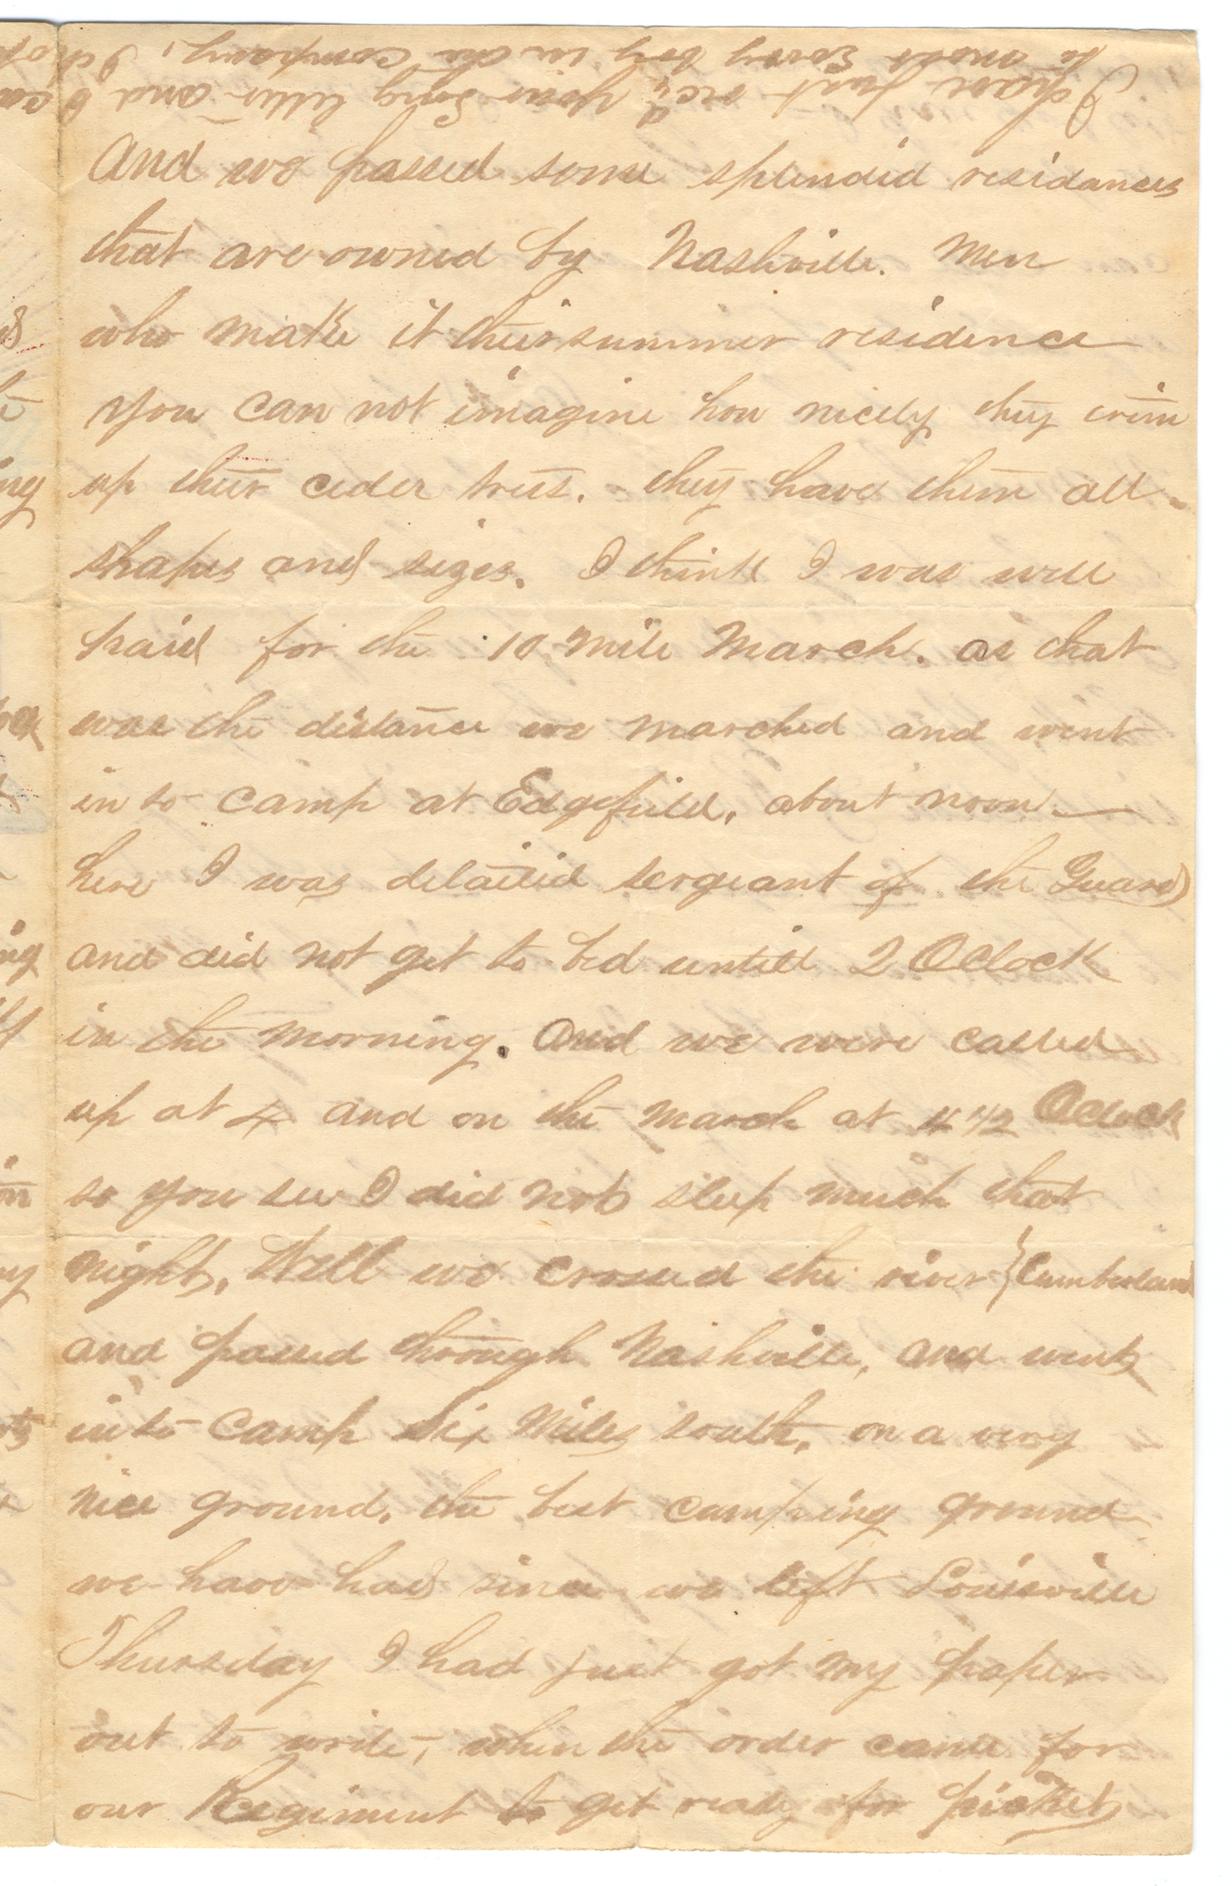 I have just rec'd your long letter and
to most every boy in the company, I
And we passed some splendid residances
that are owned by Nashville. Men
who make it their summer residence
You can not imagine how nicely they trim
up their ceder trees. they have them all
shapes and sizes. I think I was well
paid for the 10 Mile March. as that
was the distance we marched and went
in to camp at Edgefield, about noon
here I was detailed sergeant of the Guard
and did not get to bed untill 2 OClock
in the morning. And we were called
up at 4 and on the march at 4 1/2 OClock
so you see I did not sleep much that
night, Well we crossed the river {Cumberland
and passed through Nashville, and went
into camp Six Miles south, on a very
nice ground. the best camping ground
we have had since we left Louisville
Thursday I had just got my paper
out to write, when the order came for
our Regiment to get ready for picket